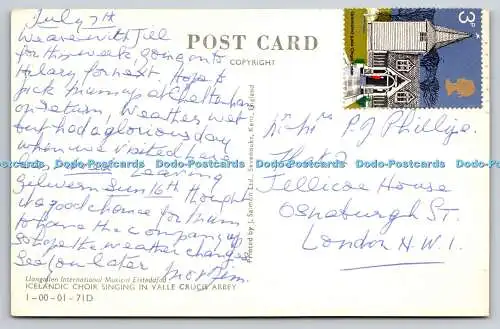 July 7th
We are with Jill
for this week, going on to
Hilary for next. Hope to
pick Mummy at Cheltenham
on return, Weather wet
but had a glorious day
when we visited here
Leaving
Sun 16th thought
a good chance for Mum
to have the company
so hope the weather changes
See you later
Llangollen International Musical Eisteddfod
ICELANDIC CHOIR SINGING IN VALLE CRUCIS ABBEY
1-00-01-71D
POST CARD
COPYRIGHT
Printed by J. Salmon Ltd., Sevenoaks, Kent, England
3p
Mr & Mrs P J Phillips
Jellicoe House
Osnaburgh St.
London N.W.1.
Dodo-Postcards Dodo-Postcards Dodo-Postcards Dodo-Postcards Dodo-Postcards